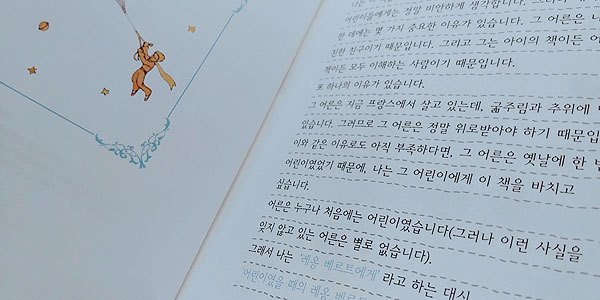 어린이들에게는 정말 미안하게 생각합니다. 그러나
한 데에는 몇 가지 중요한 이유가 있습니다. 그 어른은 나
친한 친구이기 때문입니다. 그리고 그는 아이의 책이든 어
책이든 모두 이해하는 사람이기 때문입니다.
또 하나의 이유가 있습니다.
그 어른은 지금 프랑스에서 살고 있는데, 굶주림과 추위에
있습니다. 그러므로 그 어른은 정말 위로받아야 하기 때문입
이와 같은 이유로도 아직 부족하다면, 그 어른은 옛날에 한 번
어린이였었기 때문에, 나는 그 어린이에게 이 책을 바치고
싶습니다.
어른은 누구나 처음에는 어린이였습니다(그러나 이런 사실을
잊지 않고 있는 어른은 별로 없습니다).
그래서 나는 '레옹 베르트에게' 라고 하는 대신
'어린이였을 때의 레옹 베르트